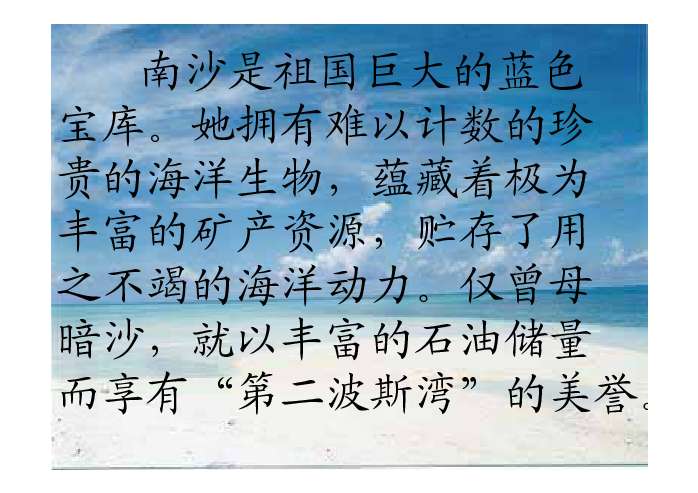 南沙是祖国巨大的蓝色
宝库。她拥有难以计数的珍
贵的海洋生物，蕴藏着极为
丰富的矿产资源，贮存了用
之不竭的海洋动力。仅曾母
暗沙，就以丰富的石油储量
而享有“第二波斯湾”的美誉。